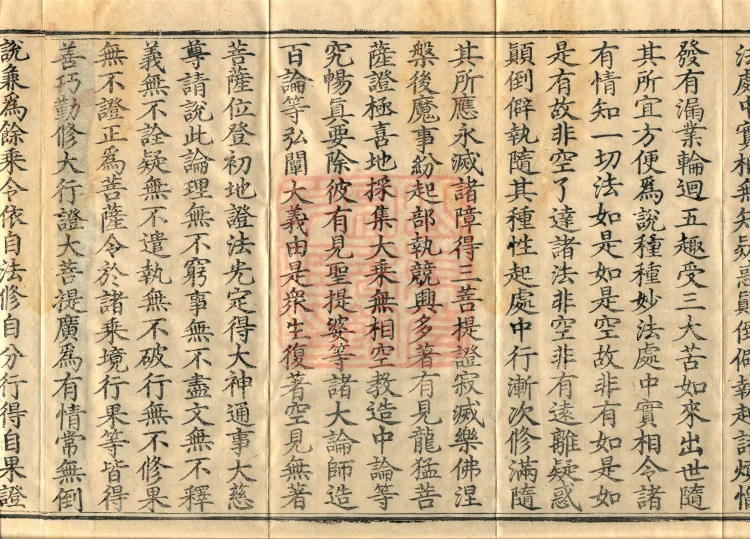 法處中實相無知疑惑顛倒僻執起諸煩惱
發有漏業輪迴五趣受三大苦如來出世隨
其所宜方便爲說種種妙法處中實相令諸
有情知一切法如是如是空故非有如是如
是有故非空了達諸法非空非有遠離疑惑
顛倒僻執隨其種性起處中行漸次修滿隨
其所應永滅諸障得三菩提證寂滅樂佛涅
槃後魔事紛起部執競興多著有見龍猛菩
薩證極喜地採集大乘無相空教造中論等
究暢眞要除彼有見聖提婆等諸大論師造
百論等弘闡大義由是衆生復著空見無著
菩薩位登初地證法光定得大神通事大慈
尊請說此論理無不窮事無不盡文無不釋
義無不詮疑無不遣執無不破行無不修果
無不證正爲菩薩令於諸乘境行果等皆得
善巧勤修大行證大菩提廣爲有情常無倒
說兼爲餘乘令依自法修自分行得自果證